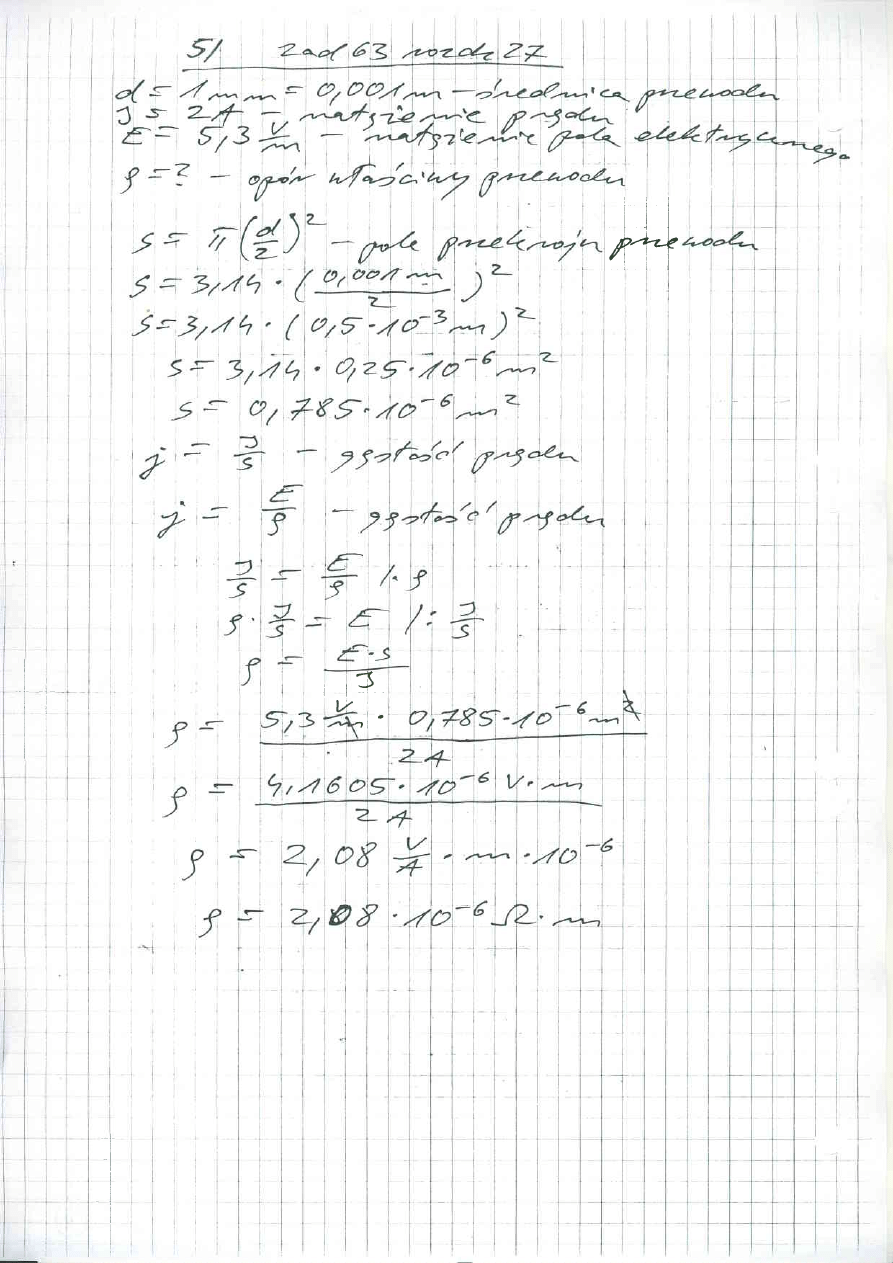 5/ zad 63 rozdz 27
d = 1mm = 0,001m – średnica przewodu
J = 2A – natężenie prądu
E = 5,3 V/m – natężenie pola elektrycznego
ρ = ? – opór właściwy przewodu
s = π(d/2)² – pole przekroju przewodu
s = 3,14 · (0,001m/2)²
s = 3,14 · (0,5·10⁻³m)²
s = 3,14 · 0,25·10⁻⁶ m²
s = 0,785·10⁻⁶ m²
j = J/s – gęstość prądu
j = E/ρ – gęstość prądu
J/s = E/ρ /·ρ
ρ · J/s = E /: J/s
ρ = E·s/J
ρ = 5,3 V/m · 0,785·10⁻⁶ m² / 2A
ρ = 4,1605·10⁻⁶ V·m / 2A
ρ = 2,08 V/A · m · 10⁻⁶
ρ = 2,08 · 10⁻⁶ Ω·m